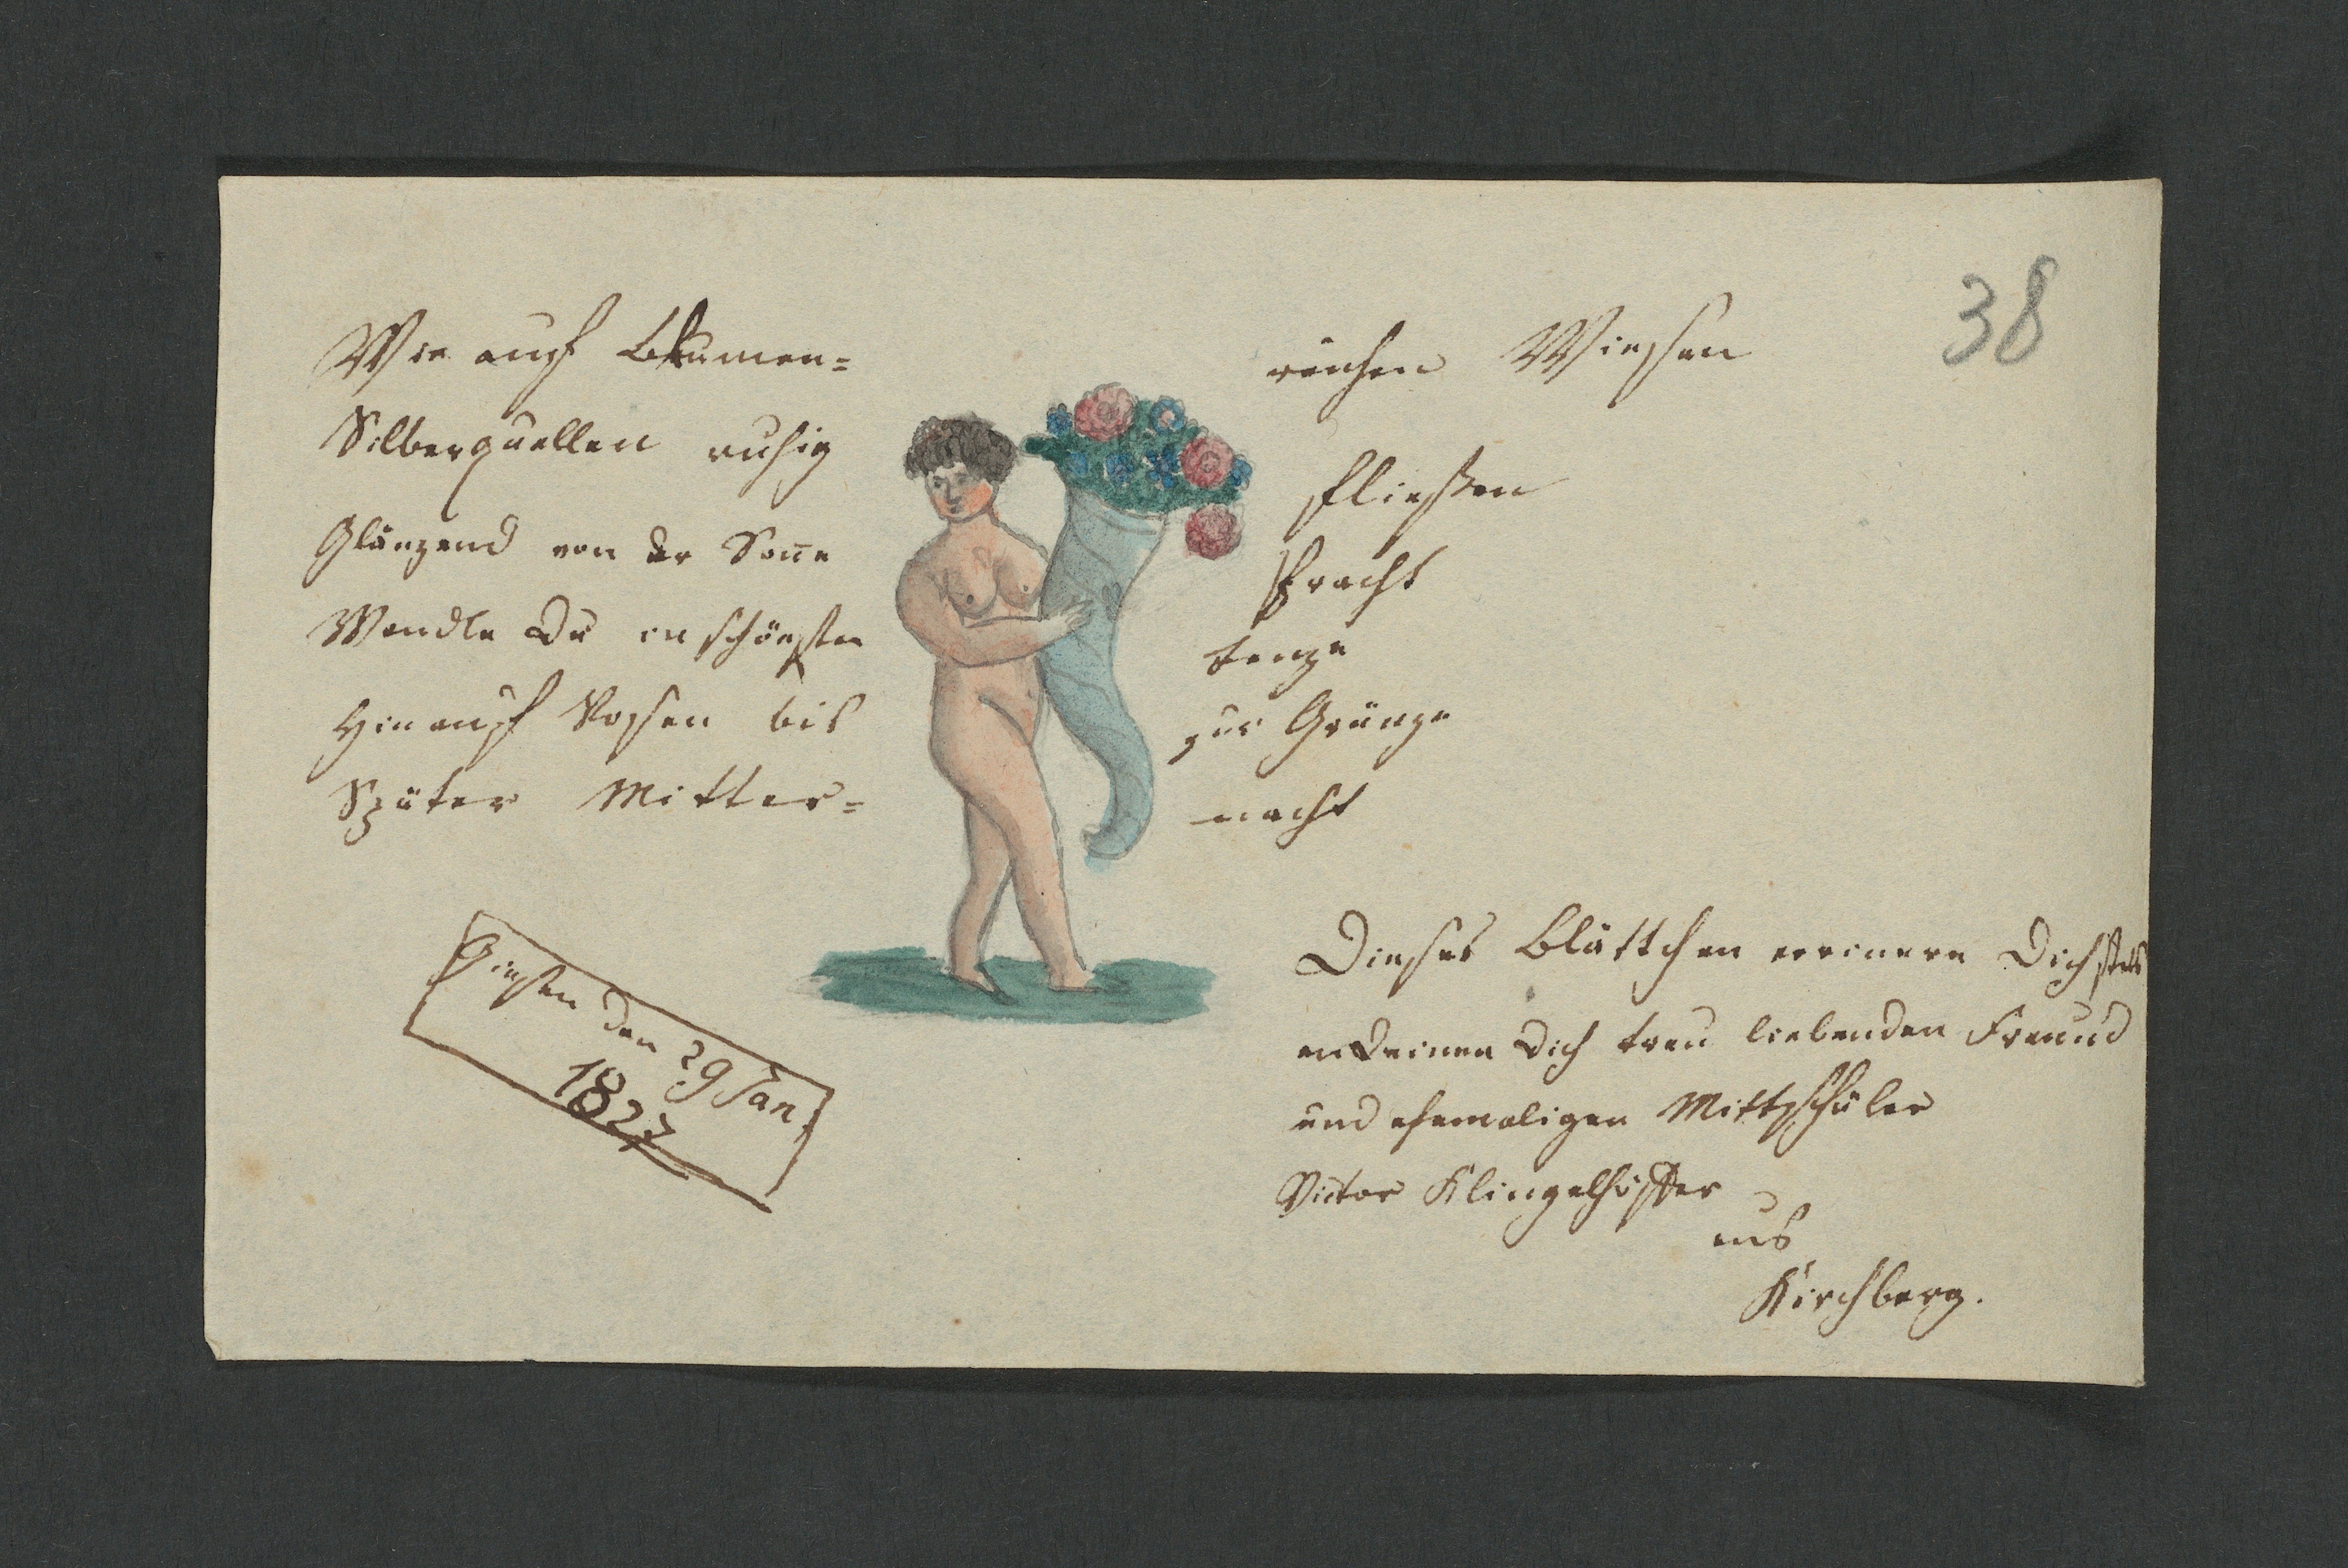 38
Wie auf Blumen= reichen Wiesen
Silberquellen ruhig fließen
Glänzend von der Soñe Pracht
Wandle Du im schönsten tenze
Hinauf Rosen bis zur Gränze
Später Mitter= nacht
Giesen den 29 Jan.
1827
Dieses Blättchen errinere Dich stets
an Deinen Dich treu liebenden Freund
und ehemaligen Mittschüler
Victor Klingelhöffer
aus
Kirchberg.